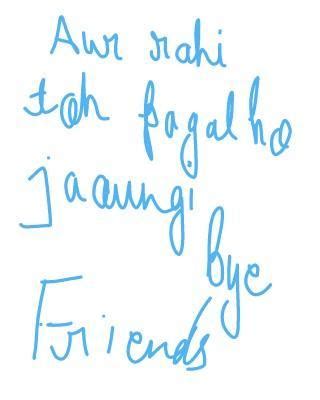 Awr rahi
toh pagal ho
jaaungi
bye
Friends